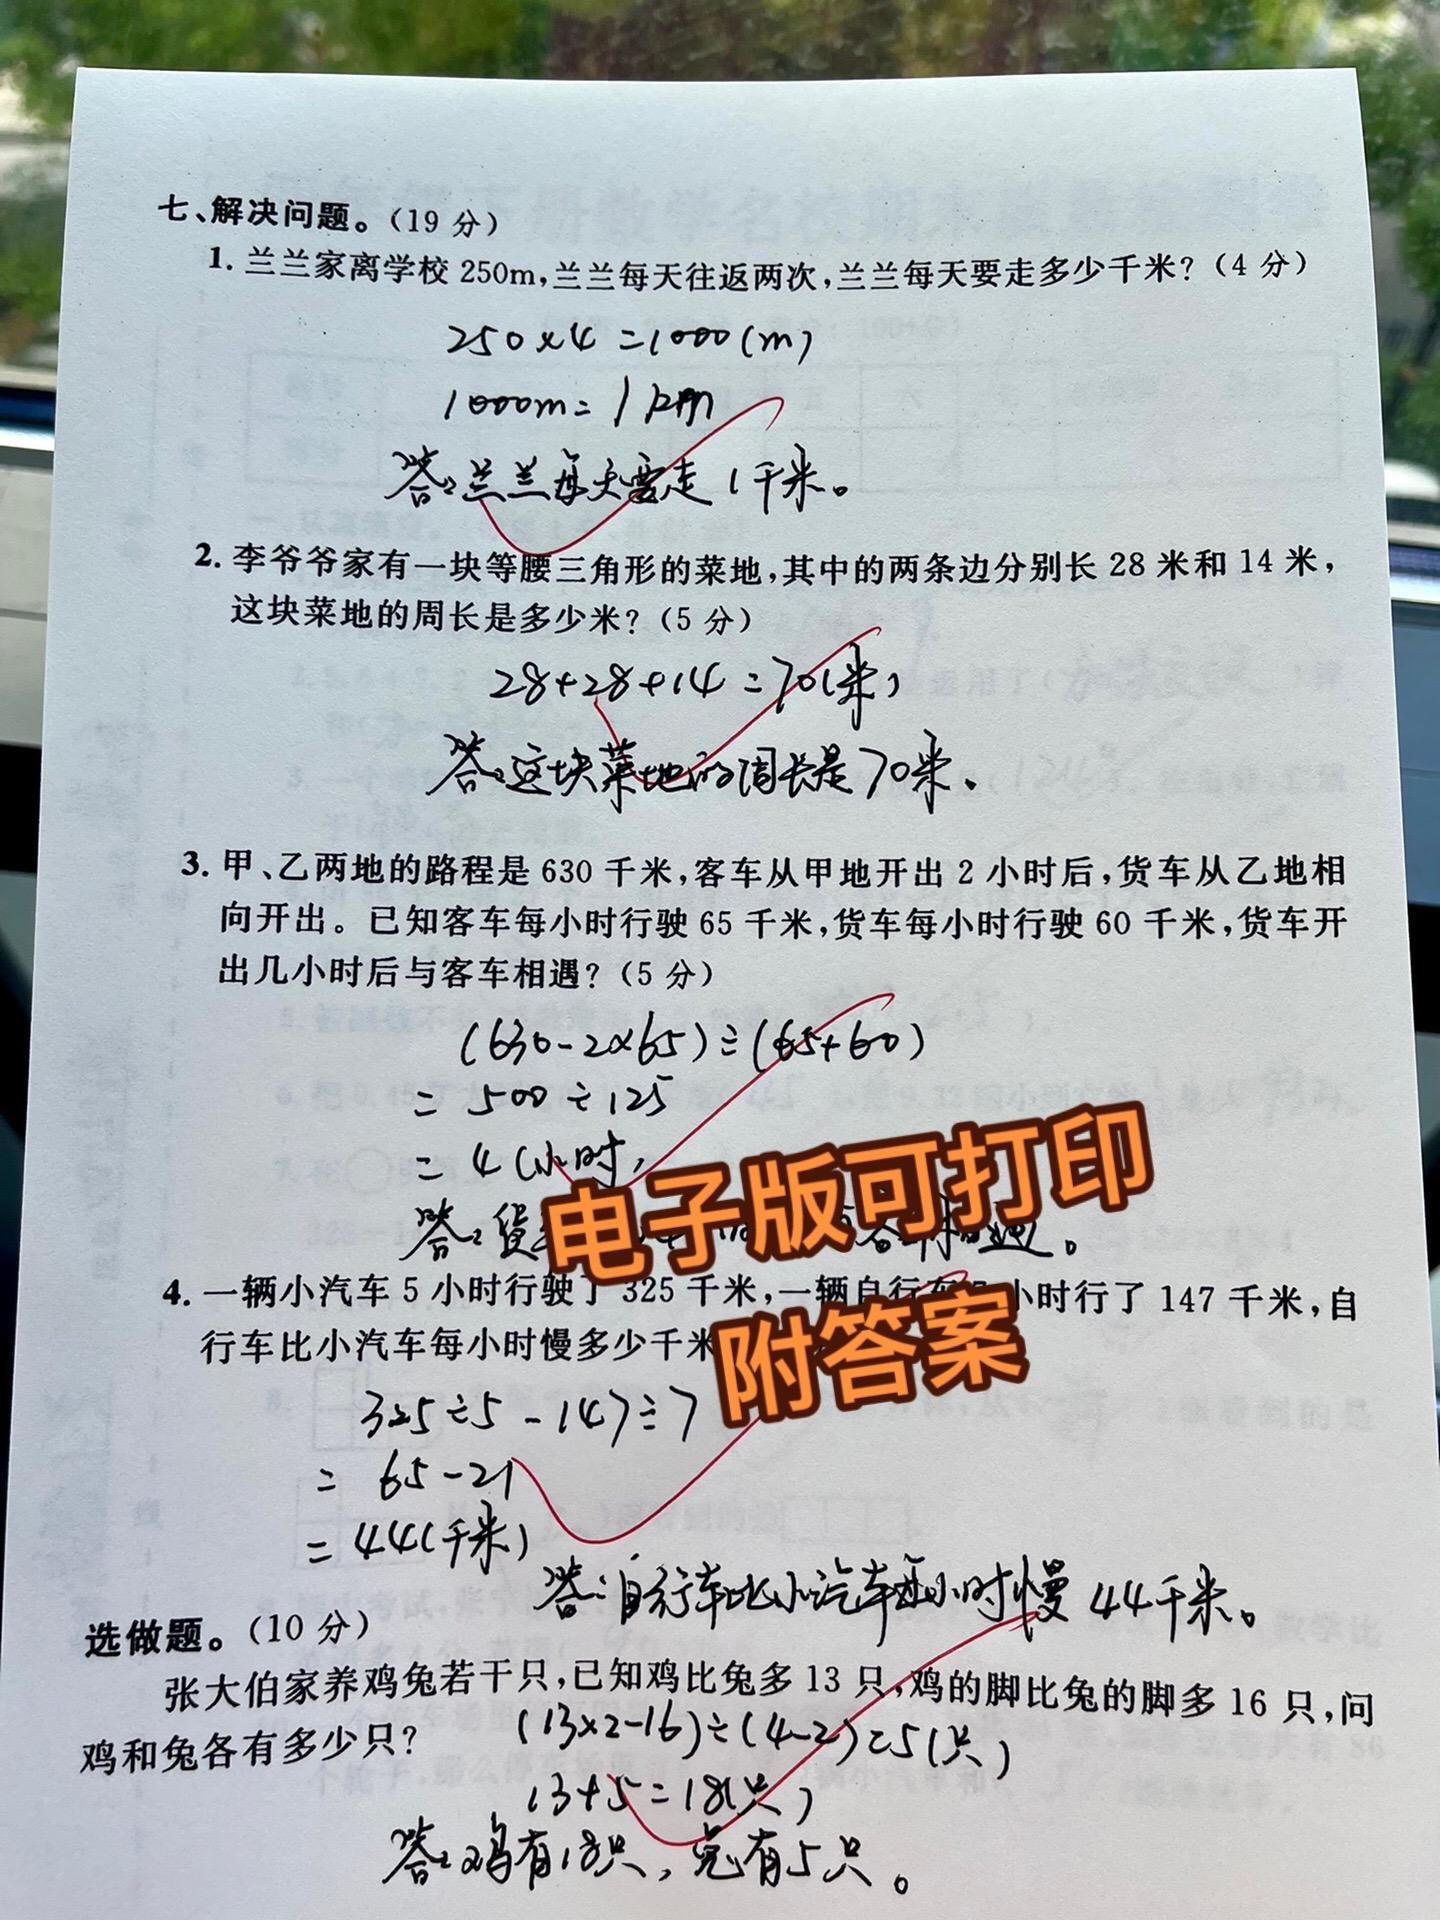 七、解决问题。(19 分)
1. 兰兰家离学校 250m,兰兰每天往返两次,兰兰每天要走多少千米?(4 分)
250×4=1000(m)
1000m=1km
答:兰兰每天要走1千米。
2. 李爷爷家有一块等腰三角形的菜地,其中的两条边分别长 28 米和 14 米,
这块菜地的周长是多少米?(5 分)
28+28+14=70(米)
答:这块菜地的周长是70米。
3. 甲、乙两地的路程是 630 千米,客车从甲地开出 2 小时后,货车从乙地相
向开出。已知客车每小时行驶 65 千米,货车每小时行驶 60 千米,货车开
出几小时后与客车相遇?(5 分)
(630-2×65)÷(65+60)
=500÷125
=4(小时)
电子版可打印
答:货 相遇。
4. 一辆小汽车 5 小时行驶了 325 千米,一辆自行车 小时行了 147 千米,自
行车比小汽车每小时慢多少千米
附答案
325÷5-147÷7
=65-21
=44(千米)
答:自行车比小汽车每小时慢44千米。
选做题。(10 分)
张大伯家养鸡兔若干只,已知鸡比兔多 13 只,鸡的脚比兔的脚多 16 只,问
鸡和兔各有多少只?
(13×2-16)÷(4-2)=5(只)
13+5=18(只)
答:鸡有18只,兔有5只。